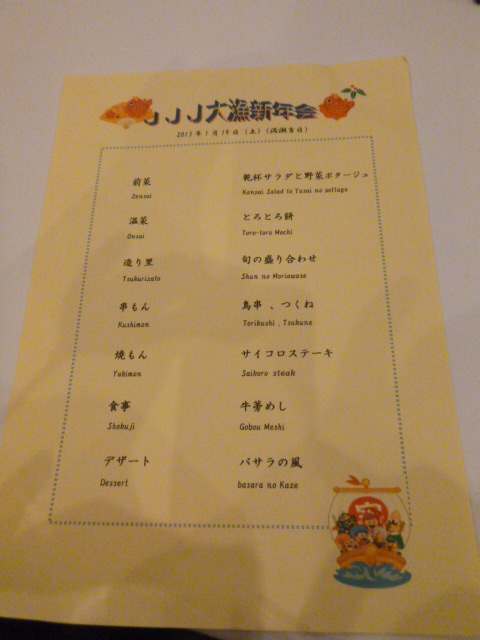 JJJ大漁新年会
2013年1月19日 (土) (満潮吉日)
前菜 乾杯サラダと野菜ポタージュ
Zensai Kanpai Salad to Yasai no pottage
温菜 とろとろ餅
Onsai Toro-toro Mochi
造り里 旬の盛り合わせ
Tsukurizato Shun no Moriawase
串もん 鳥串 、つくね
Kushimon Torikushi , Tsukune
焼もん サイコロステーキ
Yakimon Saikoro steak
食事 牛蒡めし
Shokuji Gobou Meshi
デザート バサラの風
Dessert basara no Kaze
宝